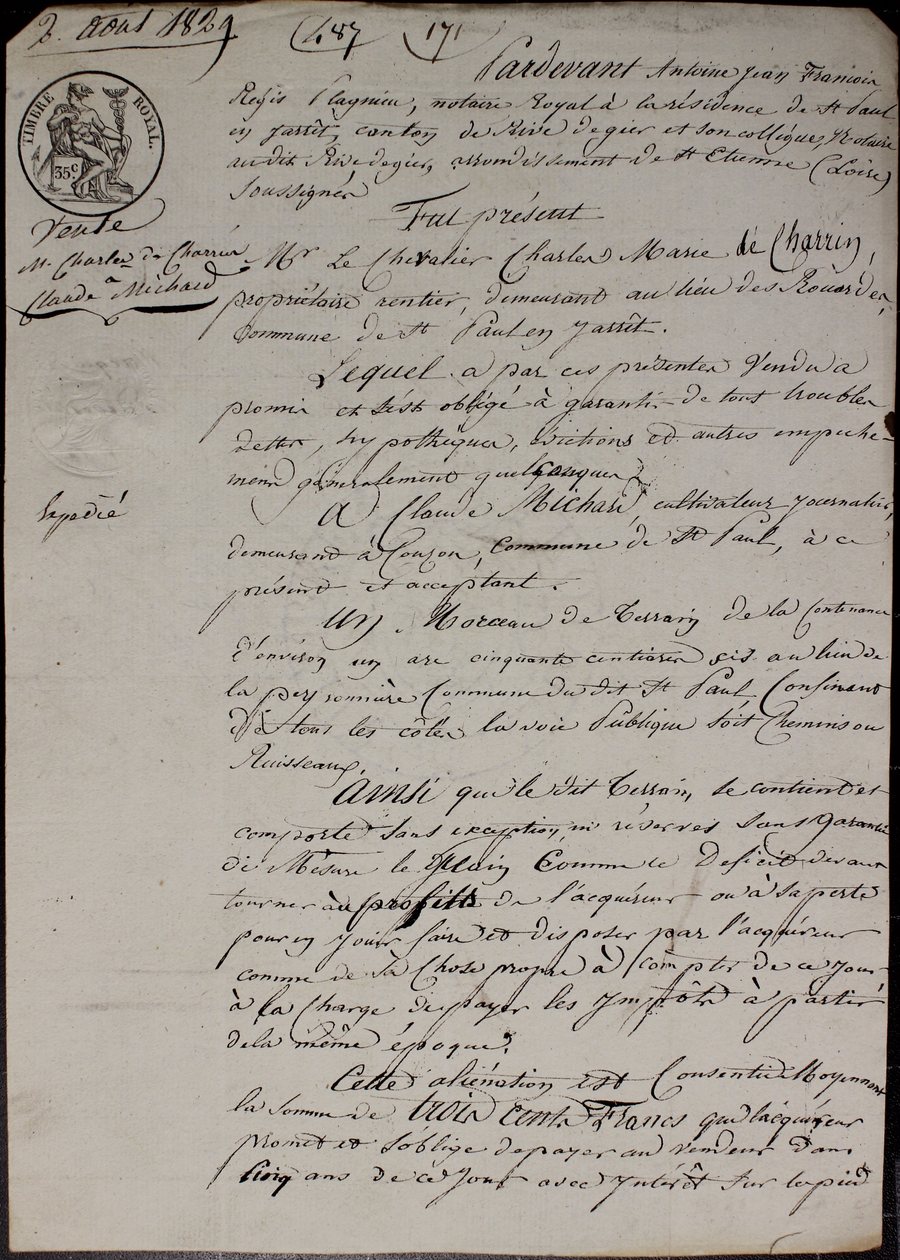 2. Août 1829
487 171
TIMBRE ROYAL.
35 c.
Vente
Mr Charles de Charrin
à
Claude Michard
Expédié
Pardevant Antoine Jean François
Régis Plagnieu, notaire Royal à la résidence de St Paul
en Jarrêt, canton de Rive de gier et son collègue, Notaire
audit Rive de gier, arrondissement de St Etienne (Loire)
Soussignés
Fut présent
Mr Le Chevalier Charles Marie de Charrin,
propriétaire rentier, demeurant au lieu des Rouardes,
Commune de St Paul en Jarrêt.
Lequel a par ces présentes Vendu a
promis et s'est obligé à garantir de tous troubles
dettes, hypothèques, évictions et autres empeche-
mens généralement quelconques
A Claude Michard, cultivateur journalier,
demeurant à Couzon, commune de St Paul, à ce
présent et acceptant.
Un Morceau de Terrain de la Contenance
d'environ un are cinquante centiares sis au lieu de
la peyronnière Commune du dit St Paul Confinant
de tous les côtés la voie Publique soit Chemins ou
Ruisseaux.
Ainsi que le dit Terrain, se contient et
comporte sans exception, ni réserves sans garantie
de Mesure le plain Comme le Deficit devant
tourner au profit de l'acquéreur ou à sa perte
pour en jouir faire et disposer par l'acquéreur
comme de sa Chose propre à compter de ce jour
à la Charge de payer les ympôts à partir
de la même époque.
Cette aliénation est Consentie Moyennant
la somme de trois cents Francs que l'acquéreur
promet et s'oblige de payer au vendeur dans
Cinq ans de ce jour avec yntérêt sur le pied